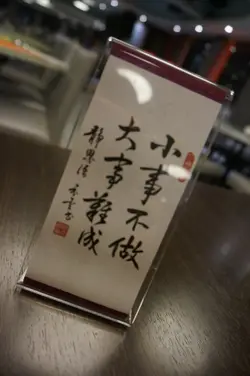 小事不做
大事難成
靜思語